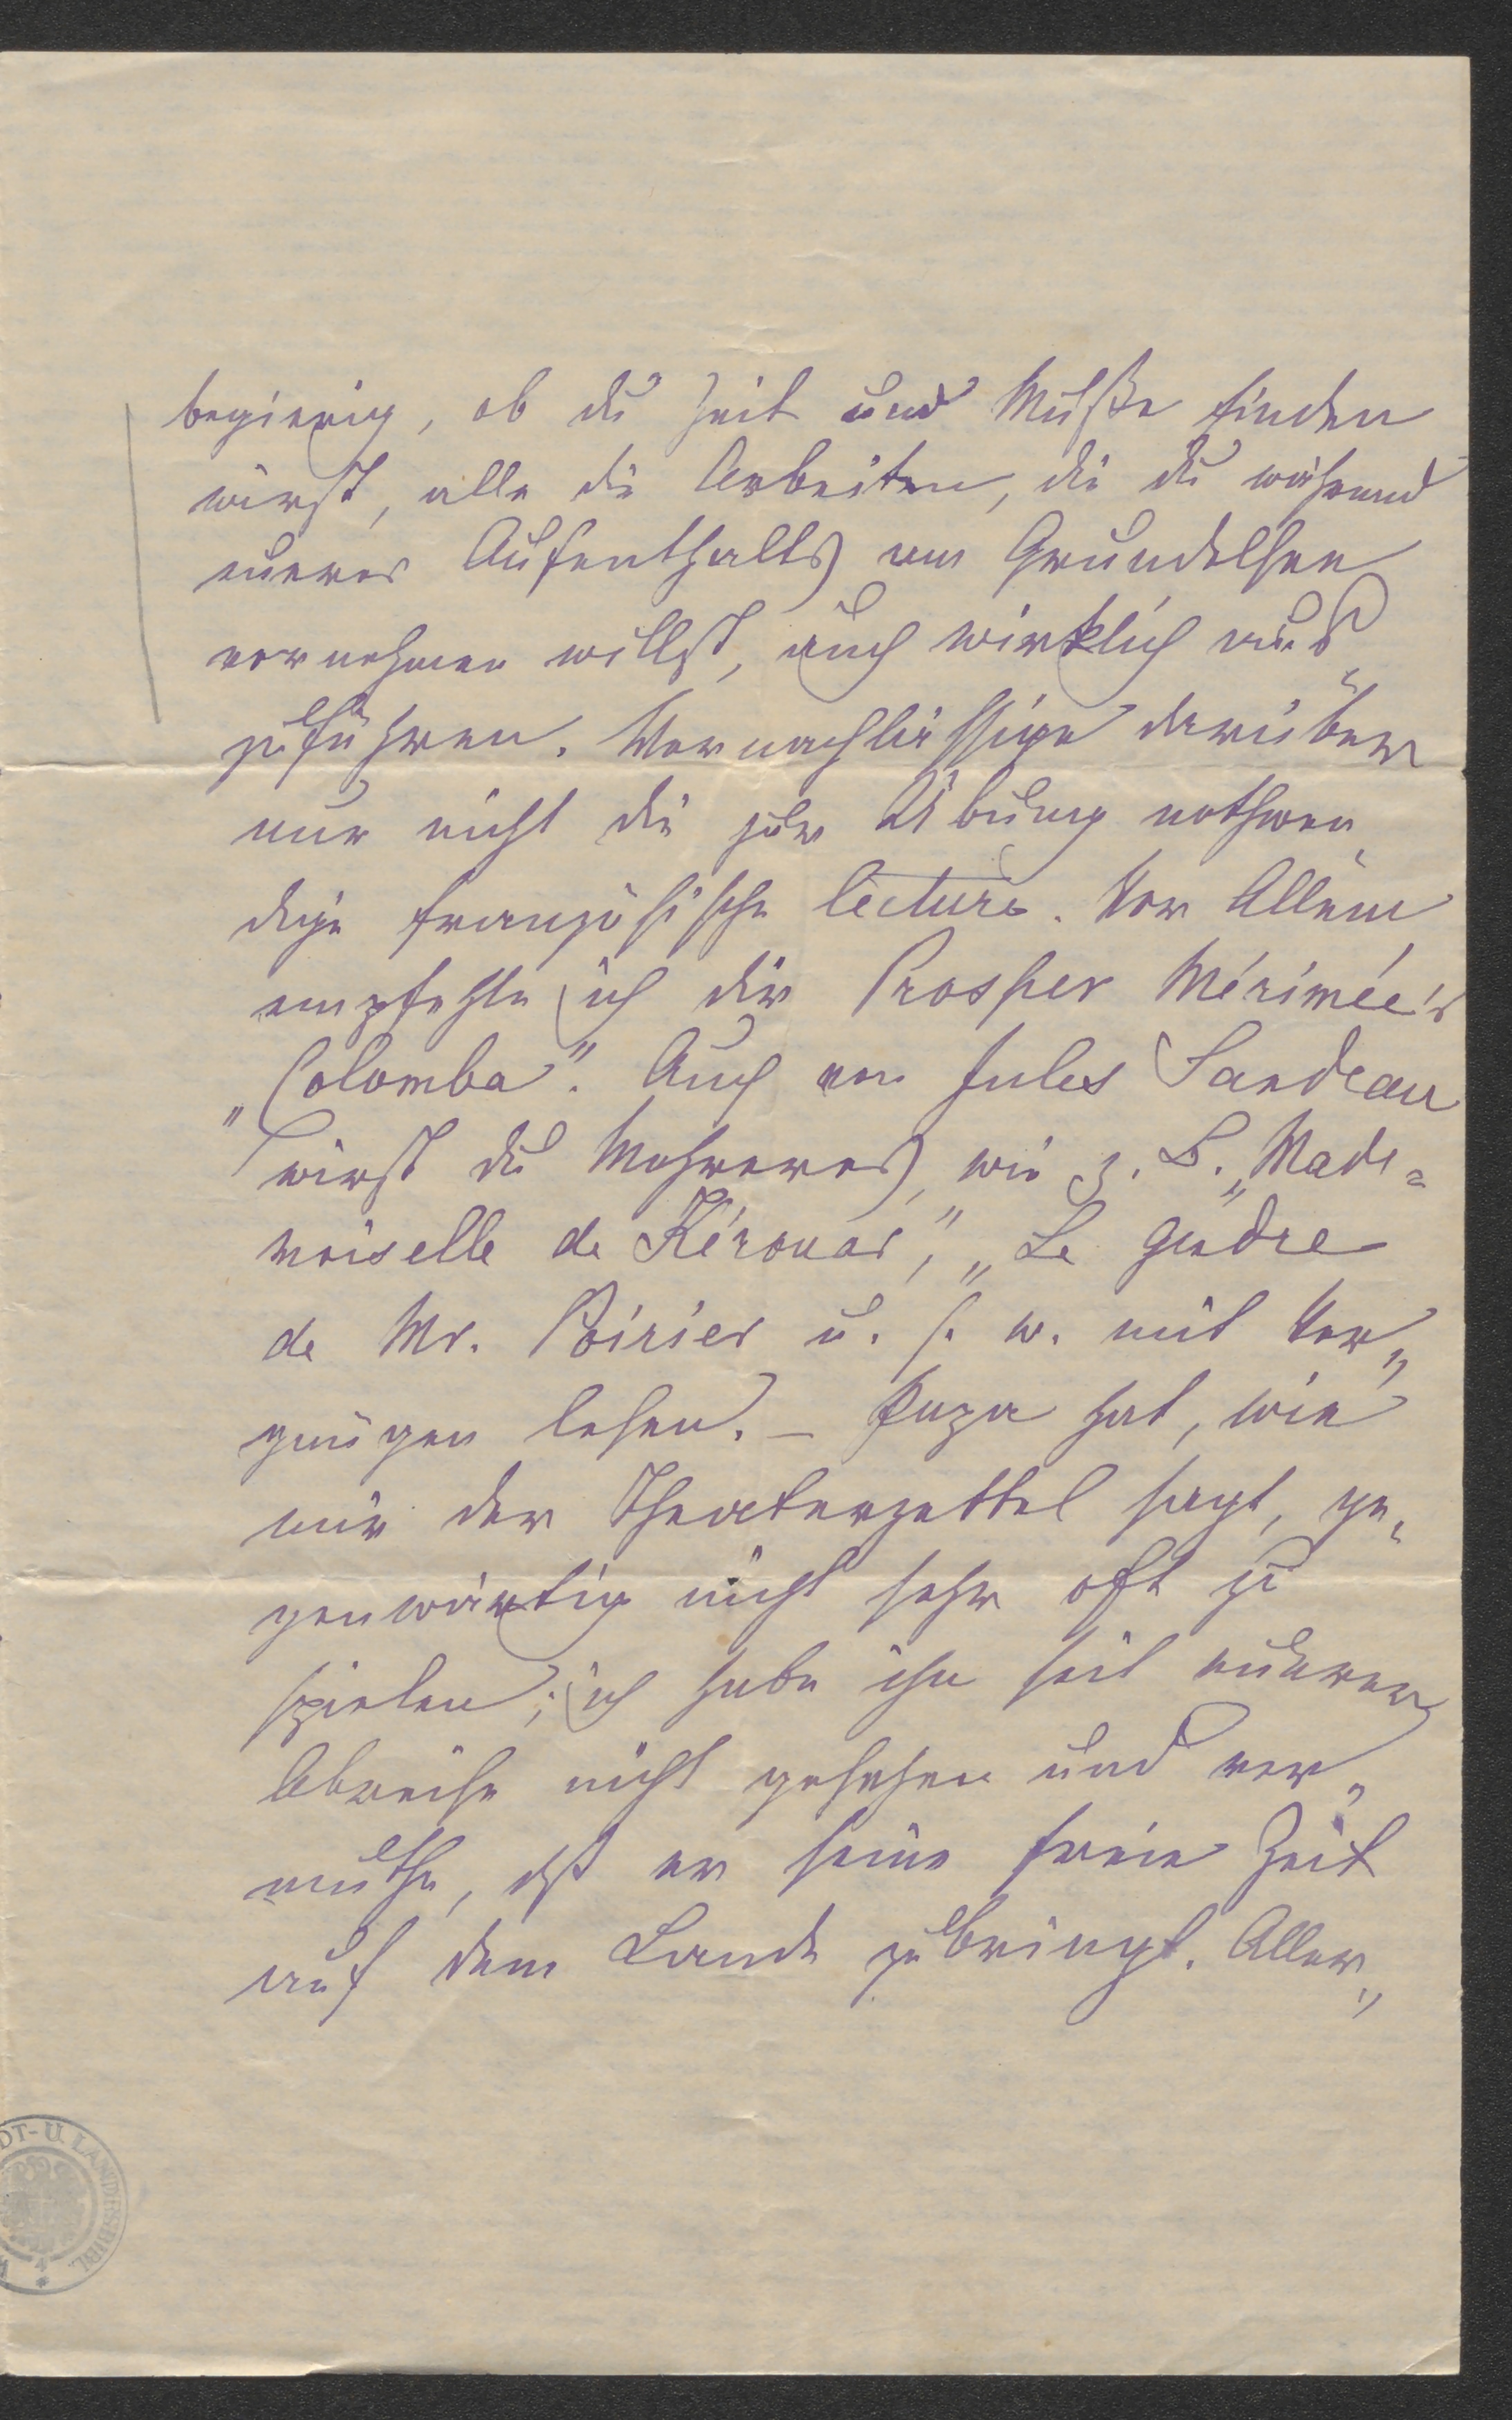 begierig, ob du Zeit und Muße finden
wirst, alle die Arbeiten, die du während
eueres Aufenthalts am Grundelsee
vornehmen willst, auch wirklich aus„
zuführen. Vernachlässige darüber
nur nicht die zur Übung nothwen„
dige französische lecture. Vor Allem
empfehle ich dir Prosper Mérimée's
„Colomba". Auch von Jules Sandeau
wirst du Mehreres, wie z. B. „Made=
moiselle de Kérouar", „Le gendre
de Mr. Poirier u. s. w. mit Ver„
gnügen lesen. – Papa hat, wie
mir der Theaterzettel sagt, ge„
genwärtig nicht sehr oft zu
spielen; ich habe ihn seit euerer
Abreise nicht gesehen und ver„
muthe, dß er seine freie Zeit
auf dem Lande zubringt. Aller„
DT- U. LANDESBIBL.